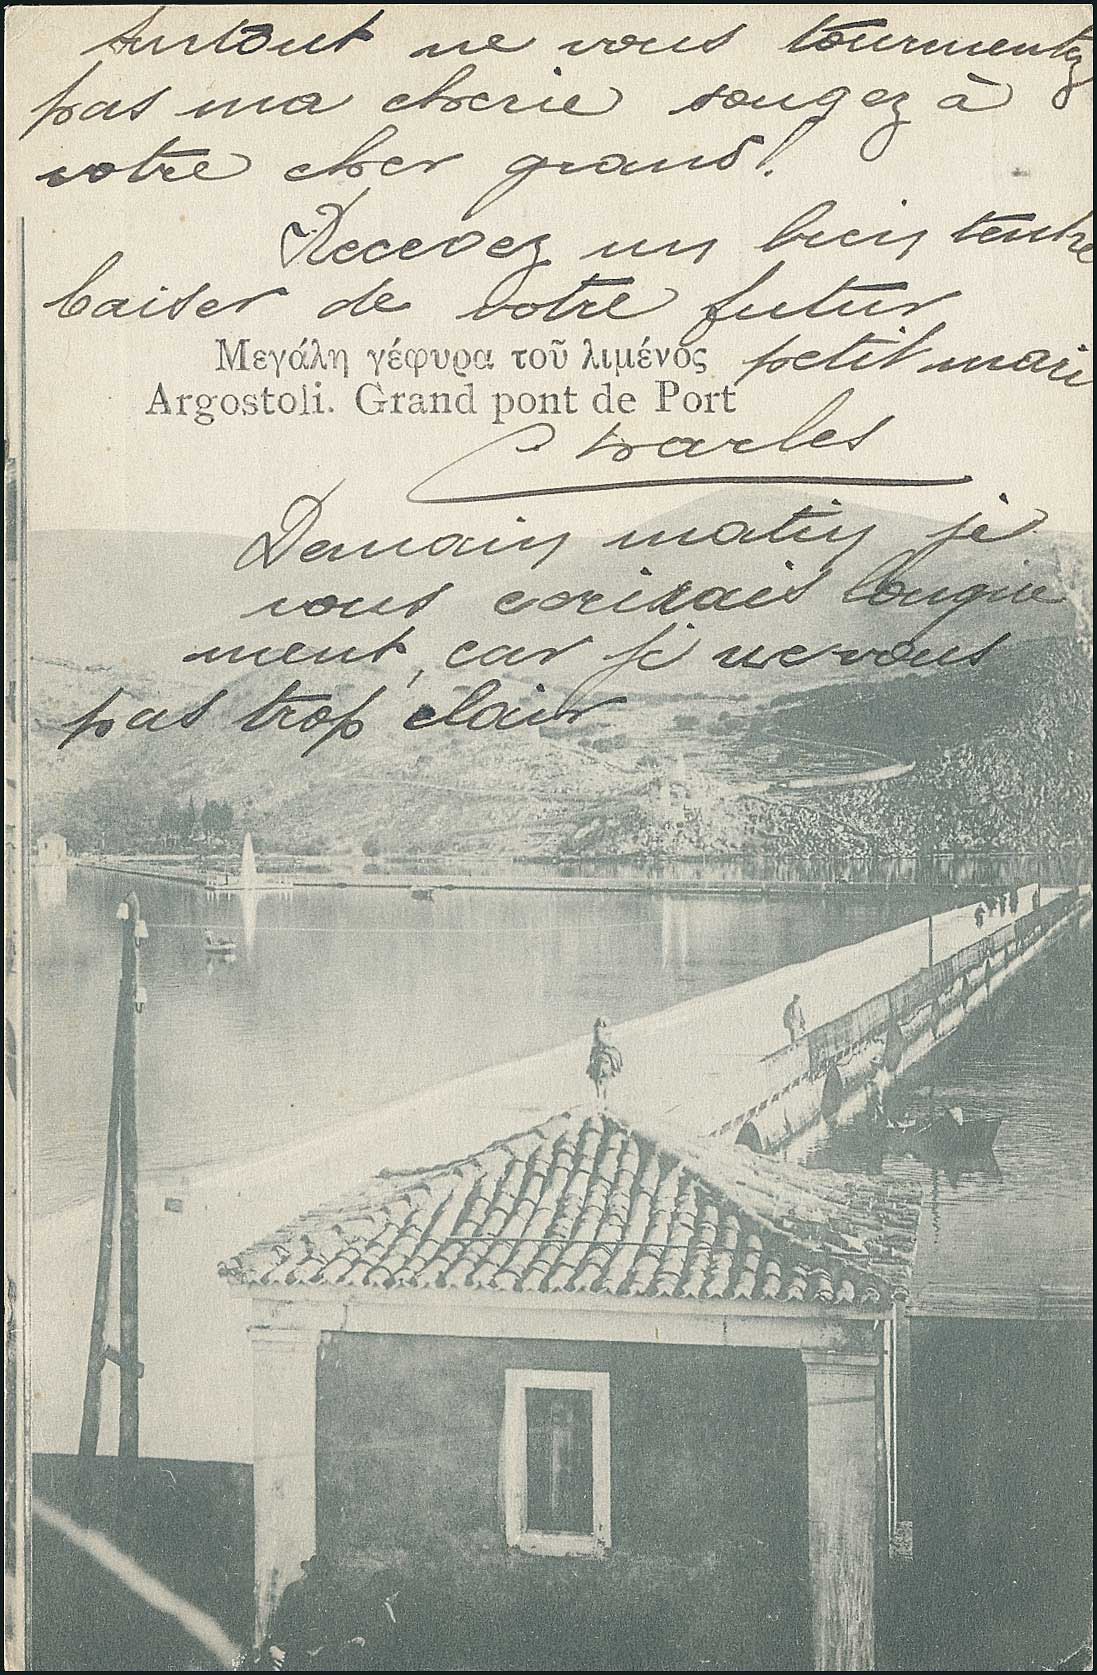 Surtout ne vous tourmentez
pas ma cherie songez à
votre cher grand!
Recevez un bien tendre
baiser de votre futur
petit mari
Μεγάλη γέφυρα τοῦ λιμένος
Argostoli. Grand pont de Port
Charles
Demain matin je
vous ecrirais longue
ment, car je ne vous
pas trop clair